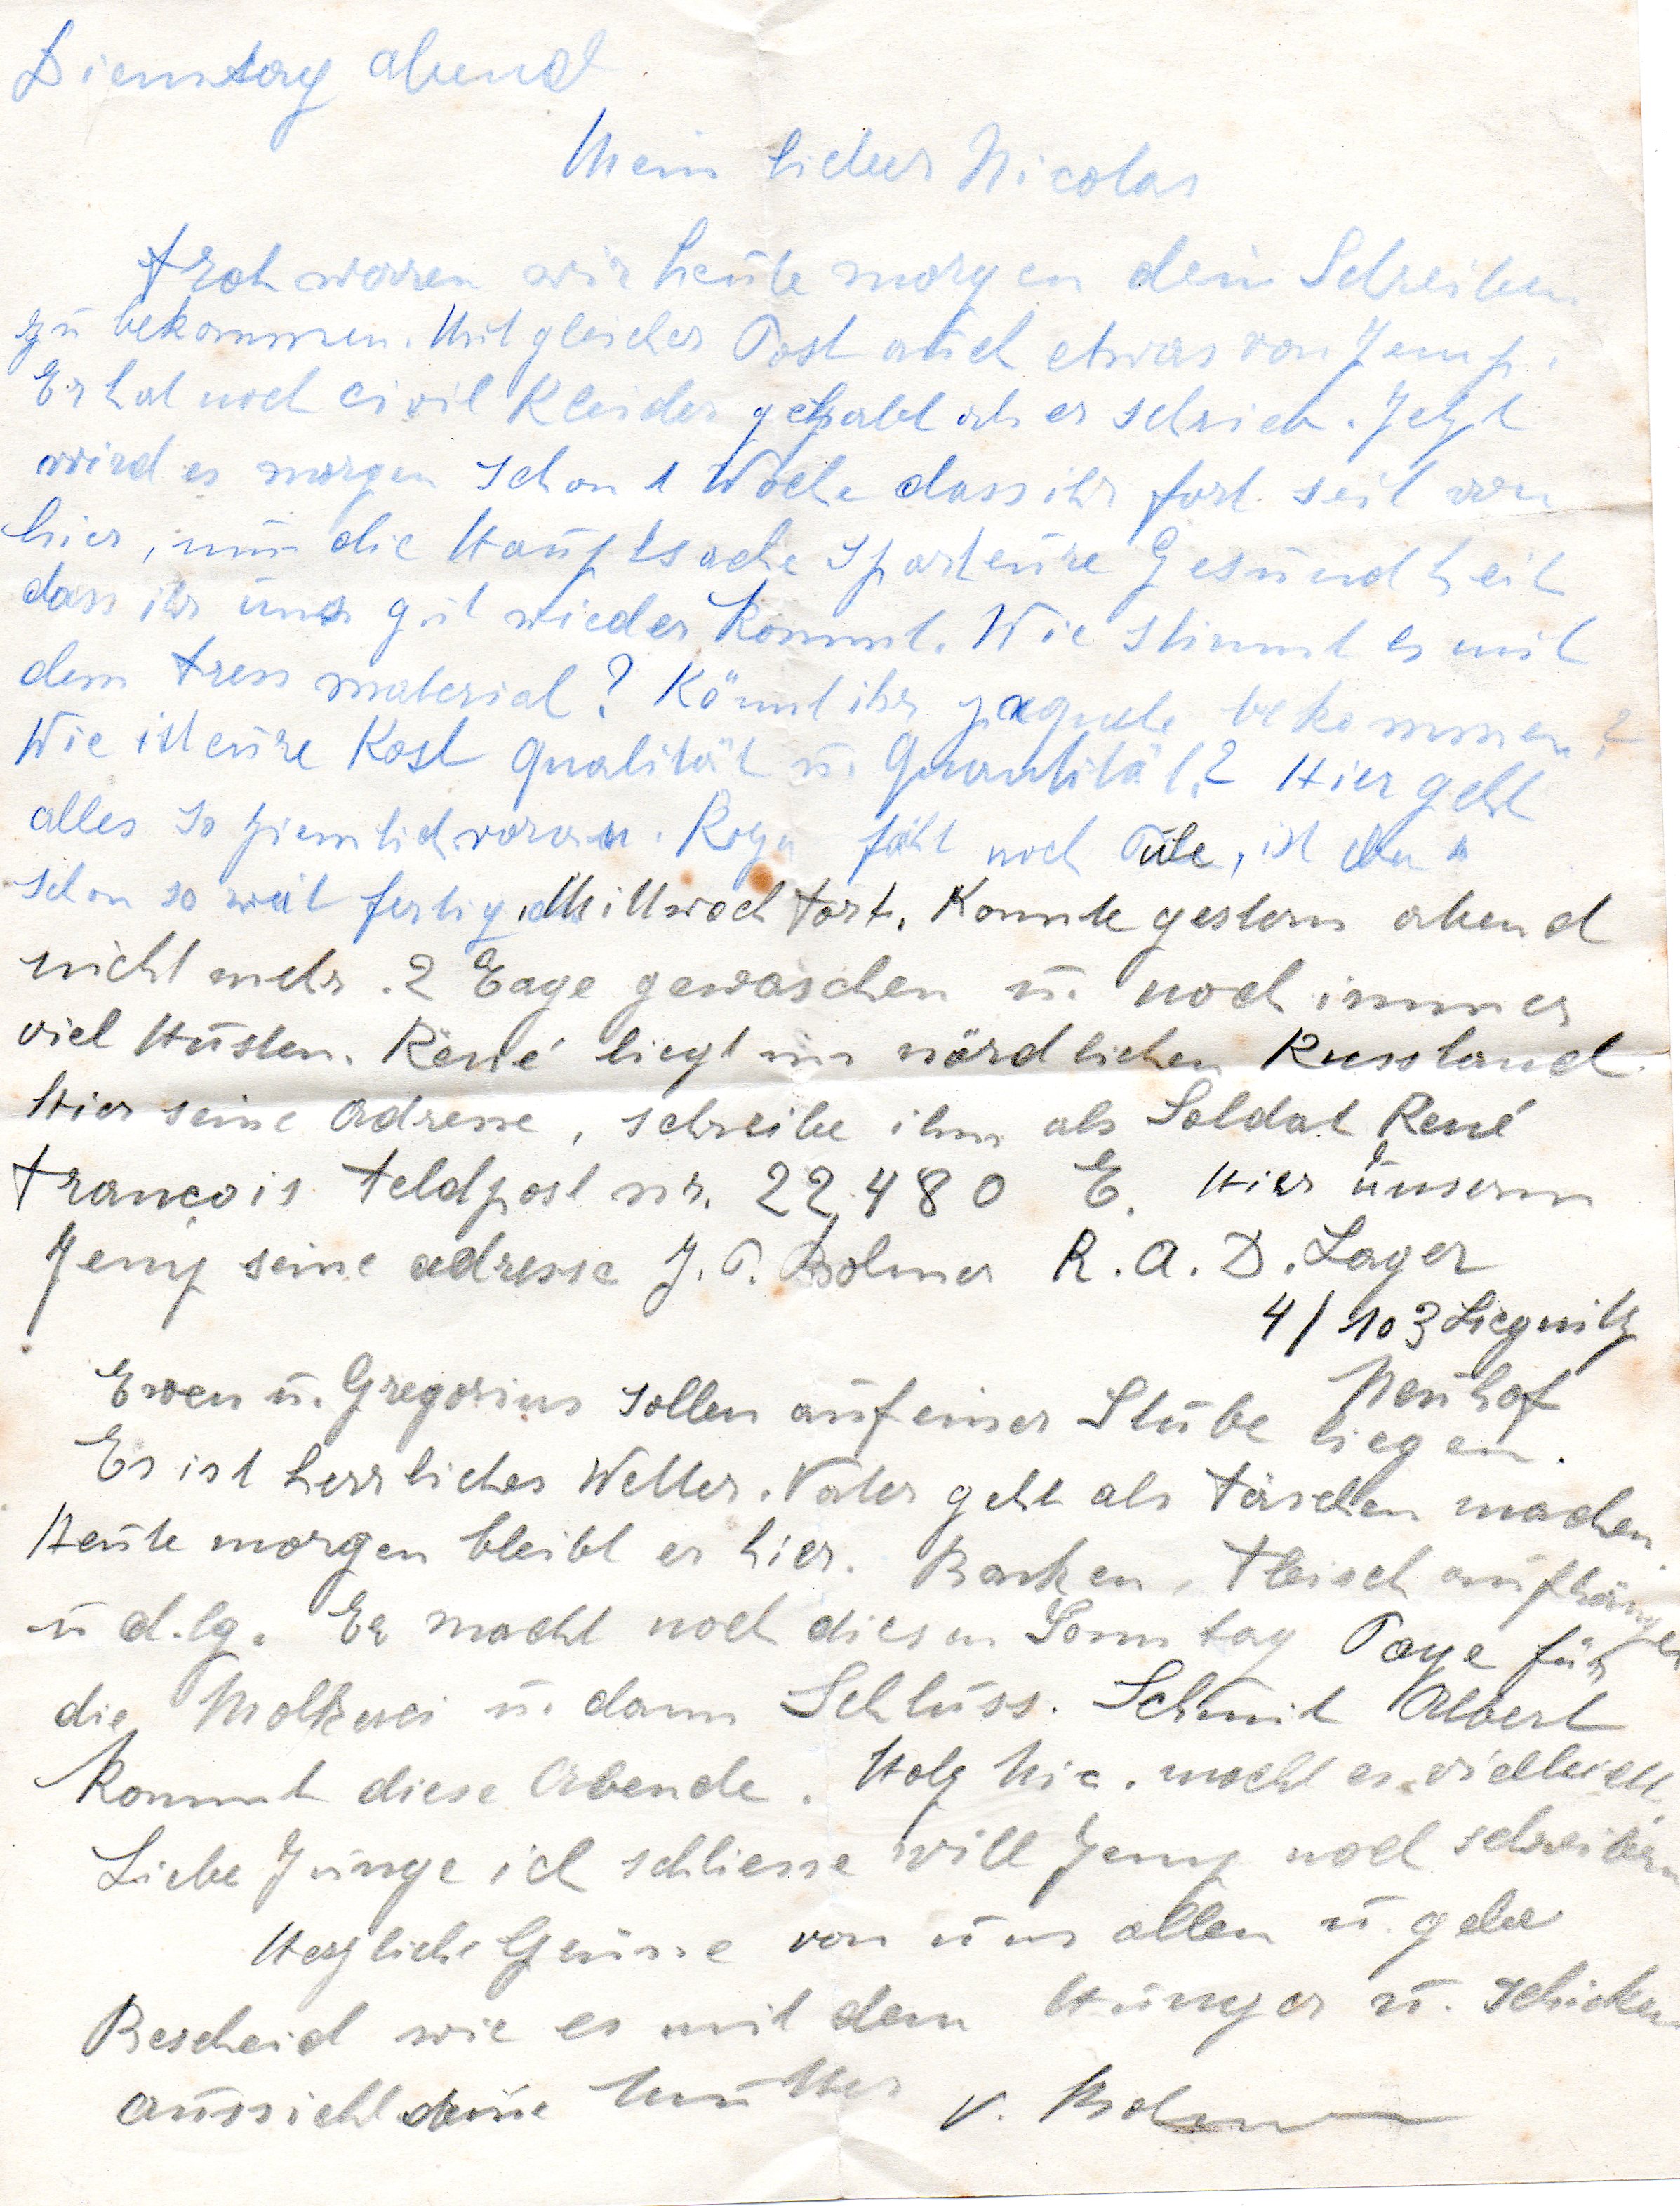 Dienstag abend
Mein lieber Nicolas
Froh waren wir heute morgen dein Schreiben
zu bekommen. Mit gleicher Post auch etwas von Jemp.
Er hat noch civil Kleider gehabt als er schrieb. Jetzt
wird es morgen schon 1 Woche dass ihr fort seit von
hier, nun die Hauptsache spart eure Gesundheit
dass ihr uns gut wieder kommt. Wie stimmt es mit
dem Fress material? Könnt ihr paquete bekommen?
Wie ist eure Kost Qualität u. Quantität? Hier geht
alles so ziemlich voran. fällt noch ist
schon so weit fertig. Mittwoch fort. Konnte gestern abend
nicht mehr. 2 Tage gewaschen u. noch immer
viel Husten. René liegt im nördlichen Russland.
Hier seine Adresse, schreibe ihm als Soldat René
Francois Feldpost nr. 22,480 E. Hier unserm
Jemp seine adresse J. P. Bohner R. A. D. Lager
4/103 Liegnitz
Neuhof
Ewen u. Gregorius sollen auf einer Stube liegen.
Es ist herrliches Wetter. Vater geht als machen.
Heute morgen bleibt er hier. Backen, Fleisch aufhängen
u d.lg. Er macht noch diesen Sonntag Paye für
die Molkerei u. dann Schluss. Schmit Albert
kommt diese Abende. Holz Nic. macht es vielleicht.
Liebe Junge ich schliesse will Jemp noch schreiben
Herzliche Grüsse von uns allen u. gebe
Bescheid wie es mit dem Hunger u. schicken
aussieht deine Mutter V.